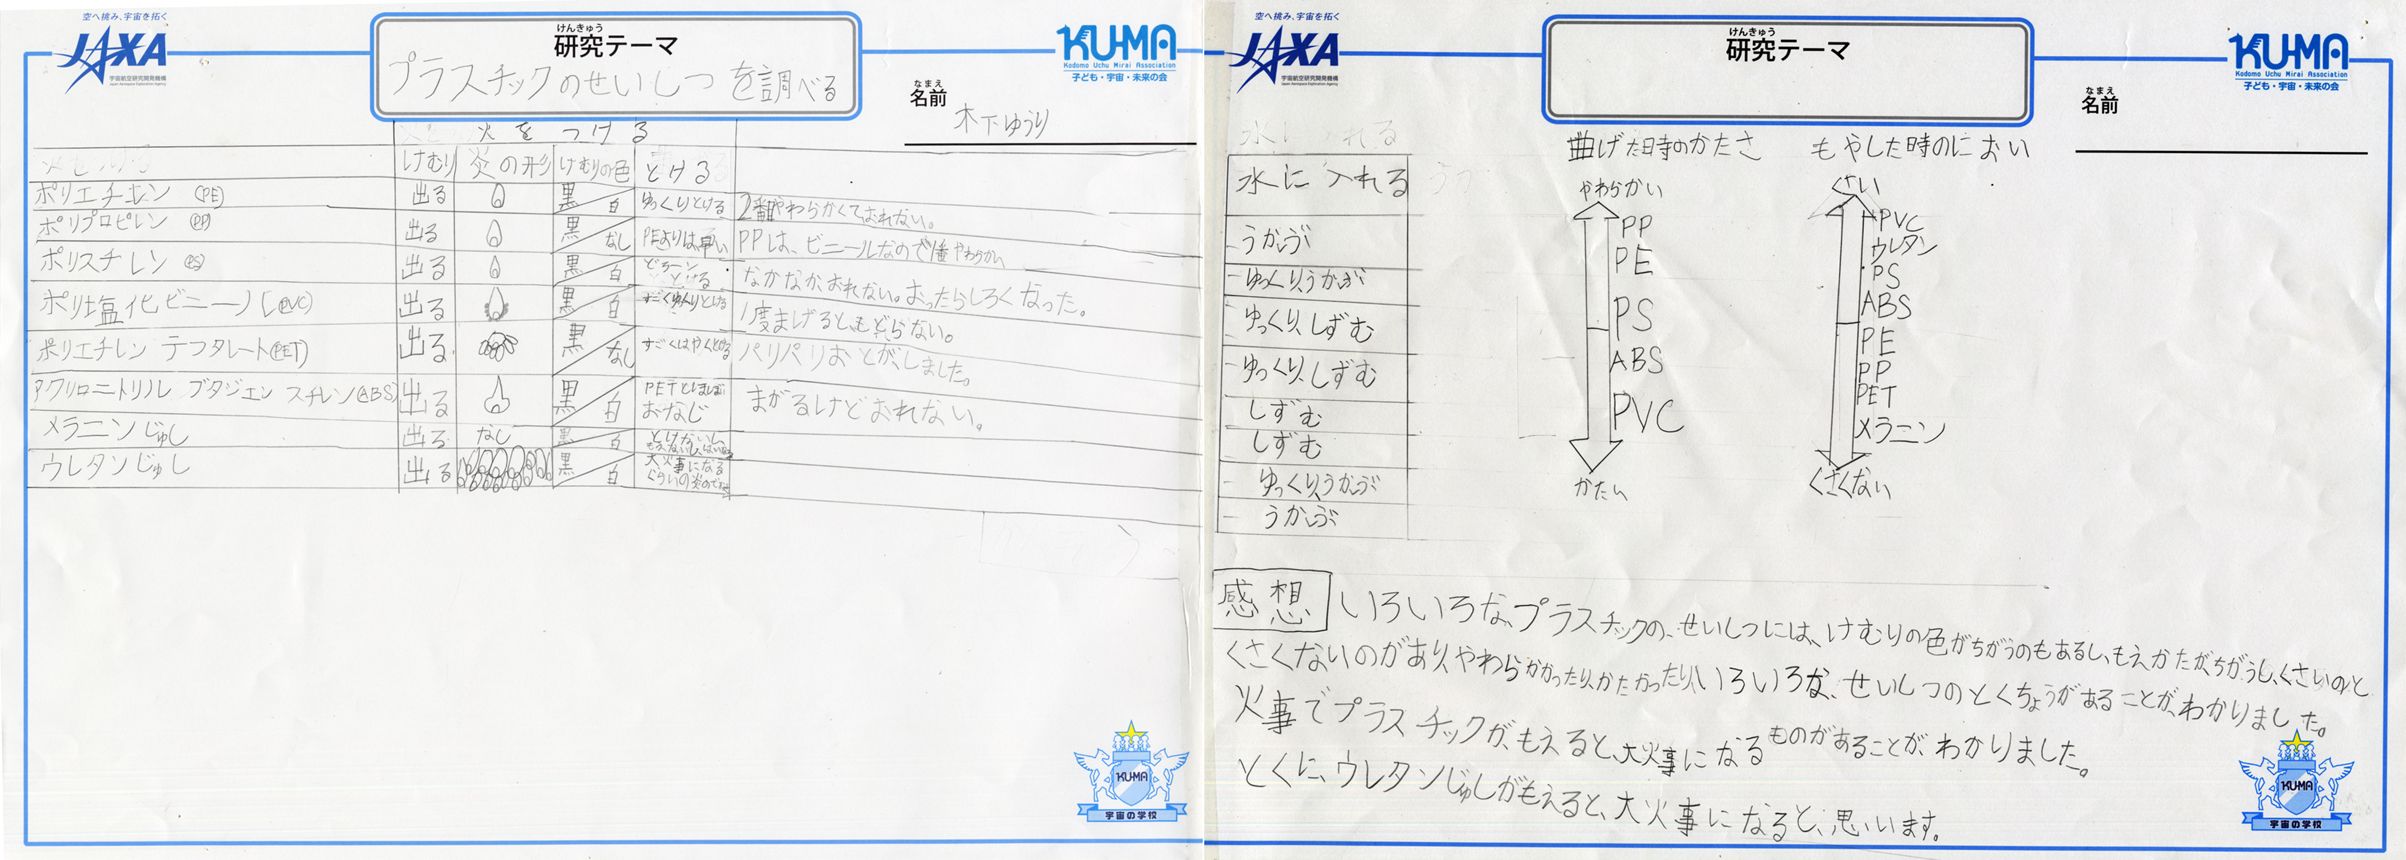 空へ挑み、宇宙を拓く
JAXA
宇宙航空研究開発機構
Japan Aerospace Exploration Agency
けんきゅう
研究テーマ
プラスチックのせいしつを調べる
KU-MA
Kodomo Uchu Mirai Association
子ども・宇宙・未来の会
なまえ
名前 木下ゆうり
火をつける
けむり 炎の形 けむりの色 とける
ポリエチレン (PE) 出る 黒/白 ゆっくりとける 2番やわらかくておれない。
ポリプロピレン (PP) 出る 黒/なし PEよりは早い PPは、ビニールなので1番やわらかい
ポリスチレン (PS) 出る 黒/白 どろーンとける なかなかおれない。おったらしろくなった。
ポリ塩化ビニール(PVC) 出る 黒/白 すごくゆっくりとける 1度まげると、もどらない。
ポリエチレン テフタレート(PET) 出る 黒/なし すごくはやくとける パリパリおとがしました。
アクリロニトリル ブタジエン スチレン(ABS) 出る 黒/白 PETとしまおなじ まがるけどおれない。
メラニンじゅし 出る なし 黒/白 とけないし、もえないし
ウレタンじゅし 出る 黒/白 大火事になるくらいの炎の
KU-MA
宇宙の学校
空へ挑み、宇宙を拓く
JAXA
宇宙航空研究開発機構
Japan Aerospace Exploration Agency
けんきゅう
研究テーマ
KU-MA
Kodomo Uchu Mirai Association
子ども・宇宙・未来の会
なまえ
名前
水に入れる
うかぶ
ゆっくり、うかぶ
ゆっくり、しずむ
ゆっくり、しずむ
しずむ
しずむ
ゆっくり、うかぶ
うかぶ
曲げた時のかたさ
やわらかい
PP
PE
PS
ABS
PVC
かたい
もやした時のにおい
くさい
PVC
ウレタン
PS
ABS
PE
PP
PET
メラニン
くさくない
感想 いろいろな、プラスチックの、せいしつには、けむりの色がちがうのもあるし、もえかたが、ちがうし、くさいのと
くさくないのがあり、やわらかかったり、かたかったり、いろいろな、せいしつのとくちょうがあることが、わかりました。
火事でプラスチックが、もえると、大火事になるものがあることが、わかりました。
とくに、ウレタンじゅしがもえると、大火事になると、思います。
KU-MA
宇宙の学校